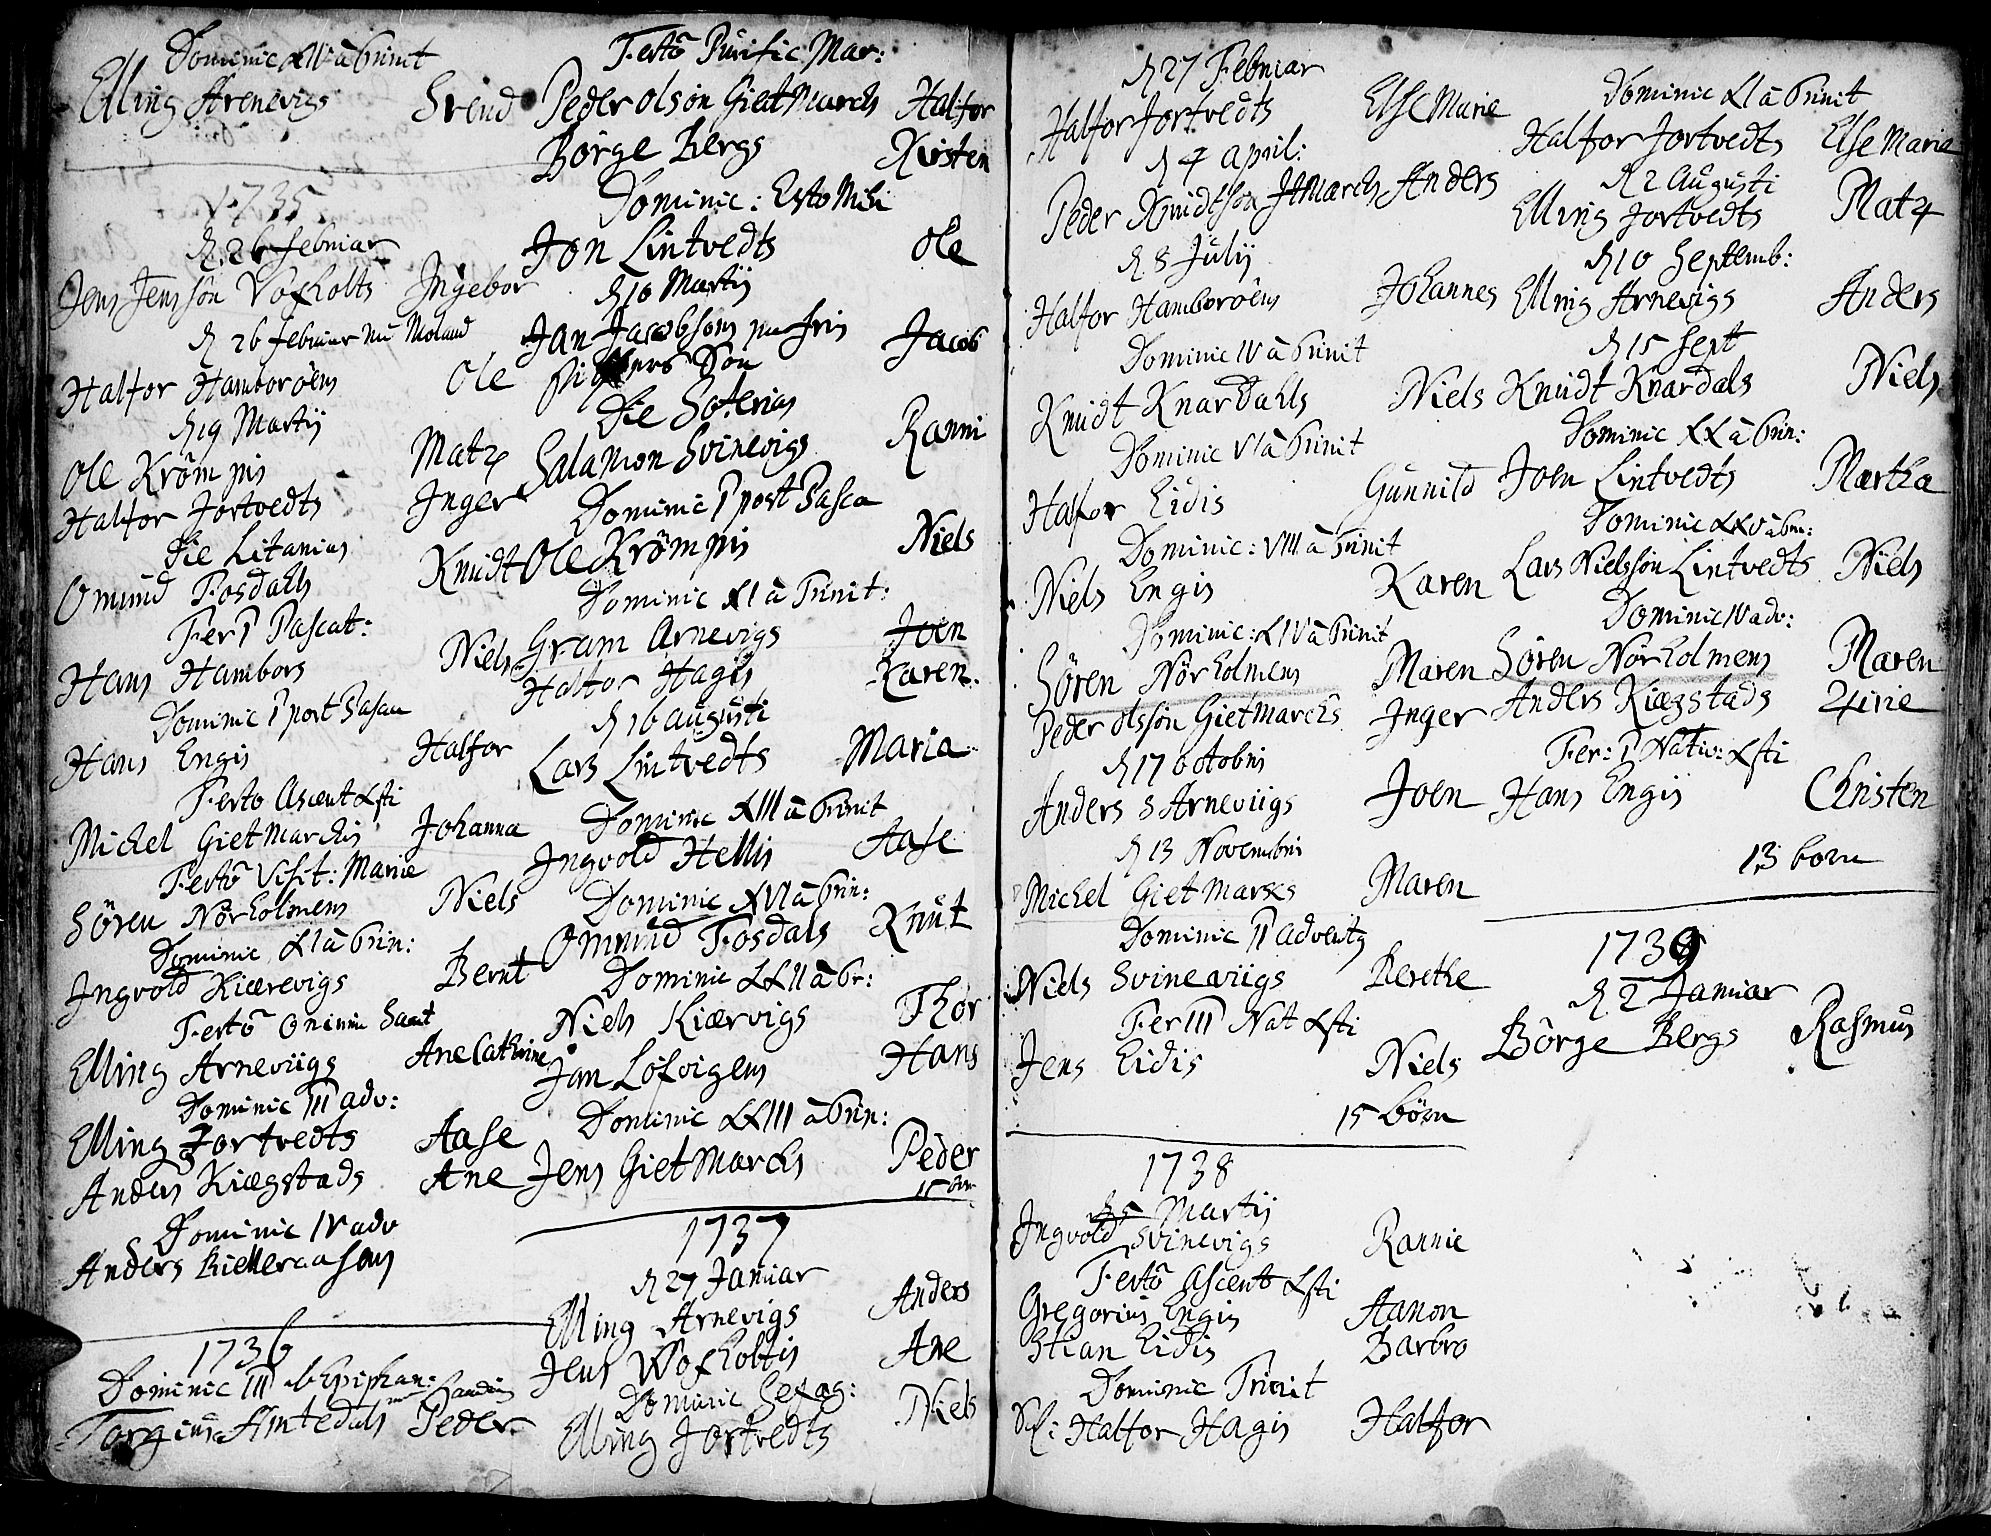 Dominic XIV â Trinit
Elling Arenevigs Svend
1735
d. 26 Februar
Jens Jensøn Voxholts Ingebor
d 26 Februar nu Moland
Halfor Hamborøens Ole
d 19 Martij
Ole Krømpis Matz
Halfor Jortvedts Inger
Die Litanius
Omund Fosdals Knudt
Fer P Pascat:
Hans Hambors Niels
Dominic P post Pascu
Hans Engis Halfor
Festo Ascent Xsti
Michel Gietmarchis Johanna
Festô Visit: Mariæ
Søren Nørholmens Niels
Dominic XI â Trin:
Ingvold Kiærevigs Bernt
Festô Omnium Sanct
Elling Arneviigs Ane Cathrine
Dominic III adv:
Elling Jortvedts Aase
Anders Kiægstads Ane
Dominic IV adv
Anders Kielleraasens
1736
Dominic III ab Epiphan:
Torgius Amtedals Peder
Festô Purific Mar:
Peder Olsøn Gietmarch Halfor
Børge Bergs Kirsten
Dominic: Esto Mihi
Jon Lintvedts Ole
d 10 Martij
Jan Jacobsøns Jacob
Søn
Die
Salamon Svinevigs Ranni
Dominic P post Pasca
Ole Krømpis Niels
Dominic XI â Trinit:
Gram Arnevigs Joen
Halfor Hagis Karen.
d 16 Augusti
Lars Lintvedts Maria
Dominic XIII â Trinit
Ingvold Hellis Aase
Dominic XVI â Trin:
Omund Fosdals Knut
Dominic XXII â Tr:
Niels Kiærvigs Thor
Jan Løfvigens Hans
Dominic XXIII â Trin:
Jens Gietmarchs Peder
15 børn
1737
d 27 Januar
Elling Arnevigs Anders
Jens Woxholtis Ane
Dominic Sexag:
Elling Jortvedts Niels
d 27 Februar
Halfor Jortvedts Else Marie
d 4 April:
Peder Knudtsøn Anders
d 8 Julij
Halfor Hamborøens Johannes
Dominic IV â Trinit
Knudt Knardahls Niels
Dominic VI â Trinit
Halfor Eidis Gunnild
Dominic: VIII â Trinit
Niels Engis Karen
Dominic: XIV â Trinit
Søren Nørholmens Maren
Peder Olssøn Gietmarchs Inger
d 17 Octobris
Anders S Arneviigs Joen
d 13 Novembris
Michel Gietmarks Maren
Dominic II Advents
Niels Svineviigs Berethe
Fer III Nat Xsti
Jens Eidis Niels
15 børn
1738
d 5 Martij
Ingvold Svinevigs Rannie
Festô Ascent Xsti
Gregorius Engis Aanon
Stian Eidis Barbro
Dominic Trinit
Sl: Halfor Hagis Halfor
Dominic XI â Trinit
Halfor Jortvedts Else Maria
d 2 Augusti
Elling Jortvedts Matz
d 10 Septemb:
Elling Arnevigs Anders
d 15 Sept
Knudt Knardals Niels
Dominic XX â Trin:
Joen Lintvedts Martha
Dominic XXV â Trin:
Lars Nielssøn Lintvedts Niels
Dominic IV adv:
Søren Nørholmens Maren
Anders Kiægstads
Fer: P Nativ: Xsti
Hans Engis Christen
13 børn
1739
d 2 Januar
Børge Bergs Rasmus